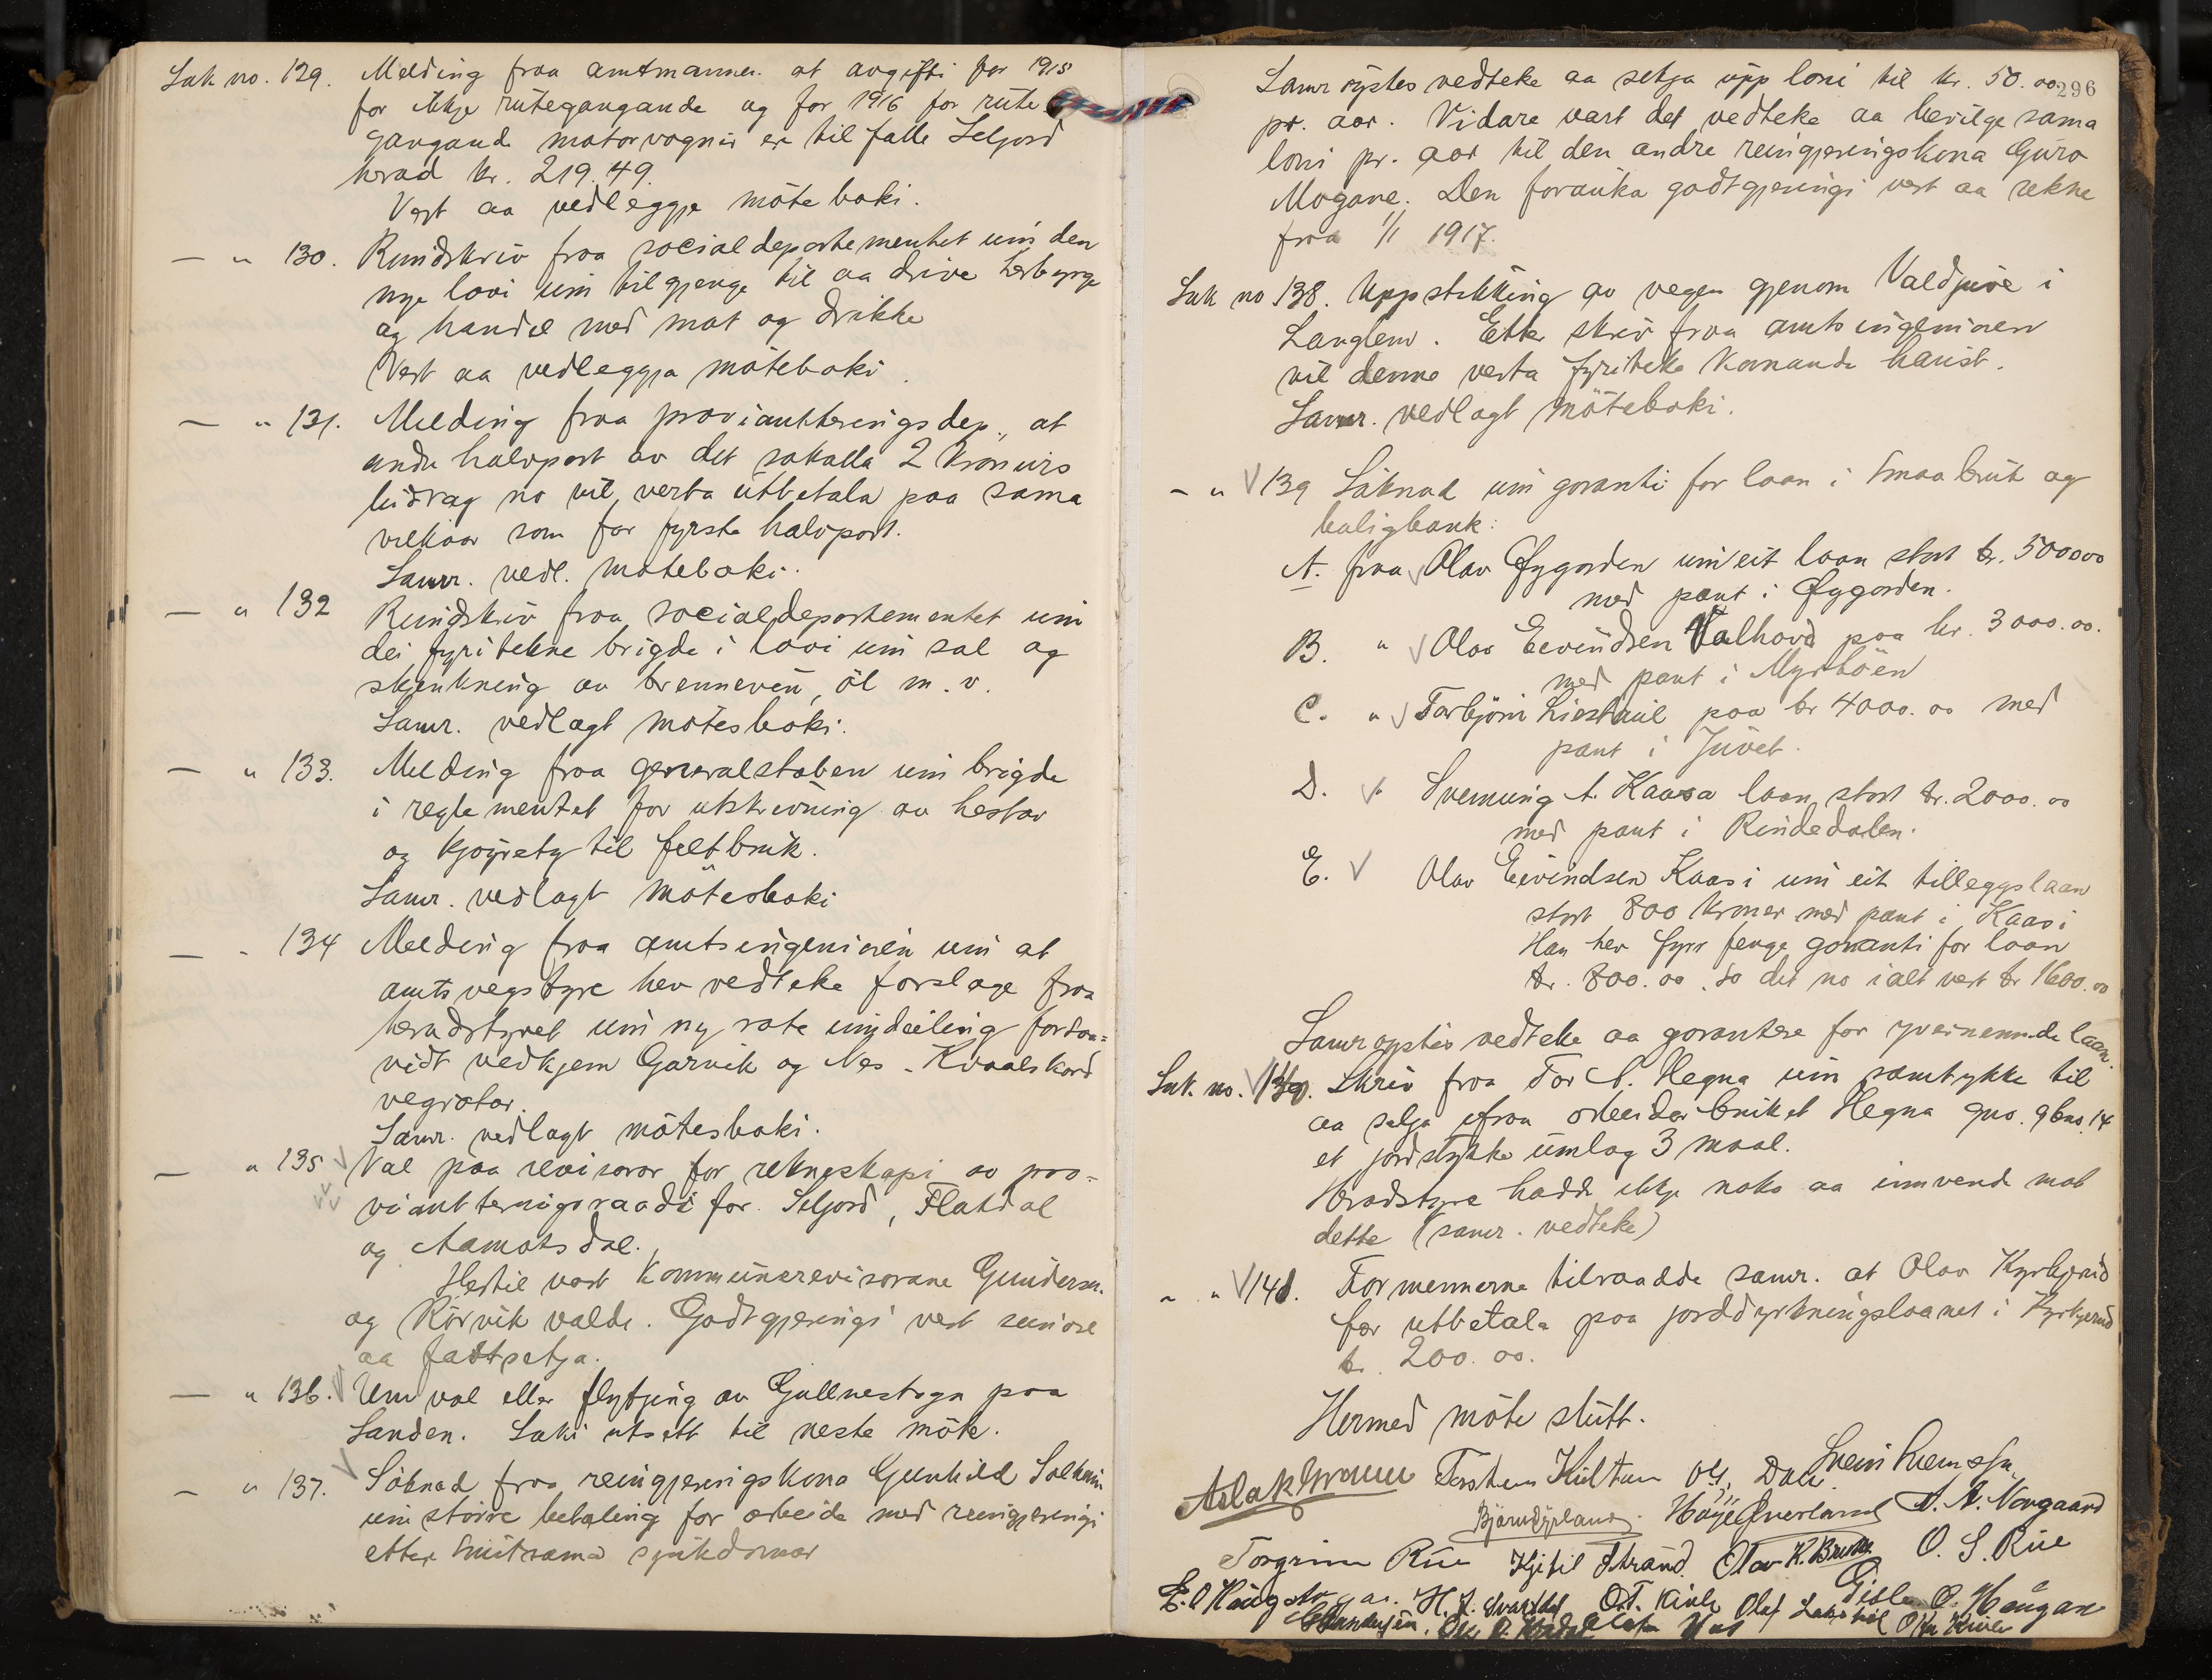 Sak no. 129. Melding fraa amtmannen at avgifti for 1915
for ikkje rutegangande og for 1916 for rute
gangande motorvogner er tilfalle Seljord
herad kr. 219.49.
Vert aa vedleggje möteboki.
— " 130. Rundskriv fraa socialdepartementet um den
nye lovi um tilgjenge til aa drive herbyrge
og handel med mat og drikke
Vert aa vedleggja möteboki.
— " 131. Melding fraa provianteringsdep., at
andre halvpart av det sokalla 2 kroners
bidrag no vil verta utbetala paa sama
vilkaar som for fyrste halvpart.
Samr. vedl. möteboki.
— " 132 Rundskriv fraa socialdepartementet um
dei fyritekne brigde i lovi um sal og
skjenkning av brennevin, öl m. v.
Samr. vedlagt mötesboki.
— " 133. Melding fraa generalstaben um brigde
i reglementet for utskrivning av hestar
og kjøyrety til feltbruk.
Samr. vedlagt mötesboki
— " 134 Melding fraa amtsingeniøren um at
amtsvegstyre hev vedteke forslage fraa
heradstyret um ny rote inndeiling forsaa=
vidt vedkjem Garvik og Nes - Kvaalskard
vegrotar.
Samr. vedlagt mötesboki.
— " 135 Val paa revisorar for rekneskapi av pro=
vianteringsraadi for Seljord, Flatdal
og Aamotsdal.
Hertil vart kommunerevisorane Gundersen
og Rörvik valde. Godtgjeringi vert seinare
aa fastsetja.
— " 136. Um val eller flytjing av Gullnestogn paa
Sanden. Saki utsett til neste möte.
— " 137. Söknad fraa reingjeringskona Gunhild Solheim
um större betaling for arbeide med reingjeringi
etter smitsame sjukdomar
296
Samrøystes vedteke aa setja upp loni til kr. 50.00
pr. aar. Vidare vart det vedteke aa bevilge sama
loni pr. aar til den andre reingjeringskona Guro
Mogane. Den forauka godtgjeringi vert aa rekne
fraa 1/1 1917.
Sak no 138. Uppstikking av vegen gjenom Valdjuve i
Langlim. Etter skriv fraa amtsingeniøren
vil denne verta fyriteke komande haust.
Samr. vedlagt möteboki.
— " 139 Söknad um garanti for laan i Smaabruk og
boligbank:
A. fraa Olav Øygarden um eit laan stort kr. 5000.00
med pant i Øygarden.
B. " Olav Eivindsen Valhovd paa kr. 3000.00.
med pant i Myrböen
C. " Torbjörn Liestaul paa kr 4000.00 med
pant i Juvet.
D. " Svenning A. Kaasa laan stort kr. 2000.00
med pant i Rindedalen.
E. Olav Eivindsen Kaasi um eit tilleggslaan
stort 800 kroner med pant i Kaasi
Han hev fyrr fenge garanti for laan
kr. 800.00. so det no ialt vert kr 1600.00
Samrøystes vedteke aa garantere for yvernemnde laan.
Sak. no. 139. Skriv fraa Tor A. Hegna um samtykke til
aa selja ifraa arbeidarbruket Hegna gno. 9 bno. 14
et jordstykke umlag 3 maal.
Heradstyre hadde ikkje noko aa innvende mot
dette (samr. vedteke)
" " 141. Formennerne tilraadde samr. at Olav Kyrkjerud
fær utbetala paa jorddyrkningslaanet i Kyrkjerud
kr. 200.00.
Hermed möte slutt.
Aslak Torsten Kiltun Ols. Dale Svein
Björn Dyrland. Höye Øverland A. A. Norgaard
Torgrim Rue Kjetil Strand. Olav K. O. S. Rue
H. J. Svartdal O.T. Olaf Gisle O. Haugan
Gundersen.